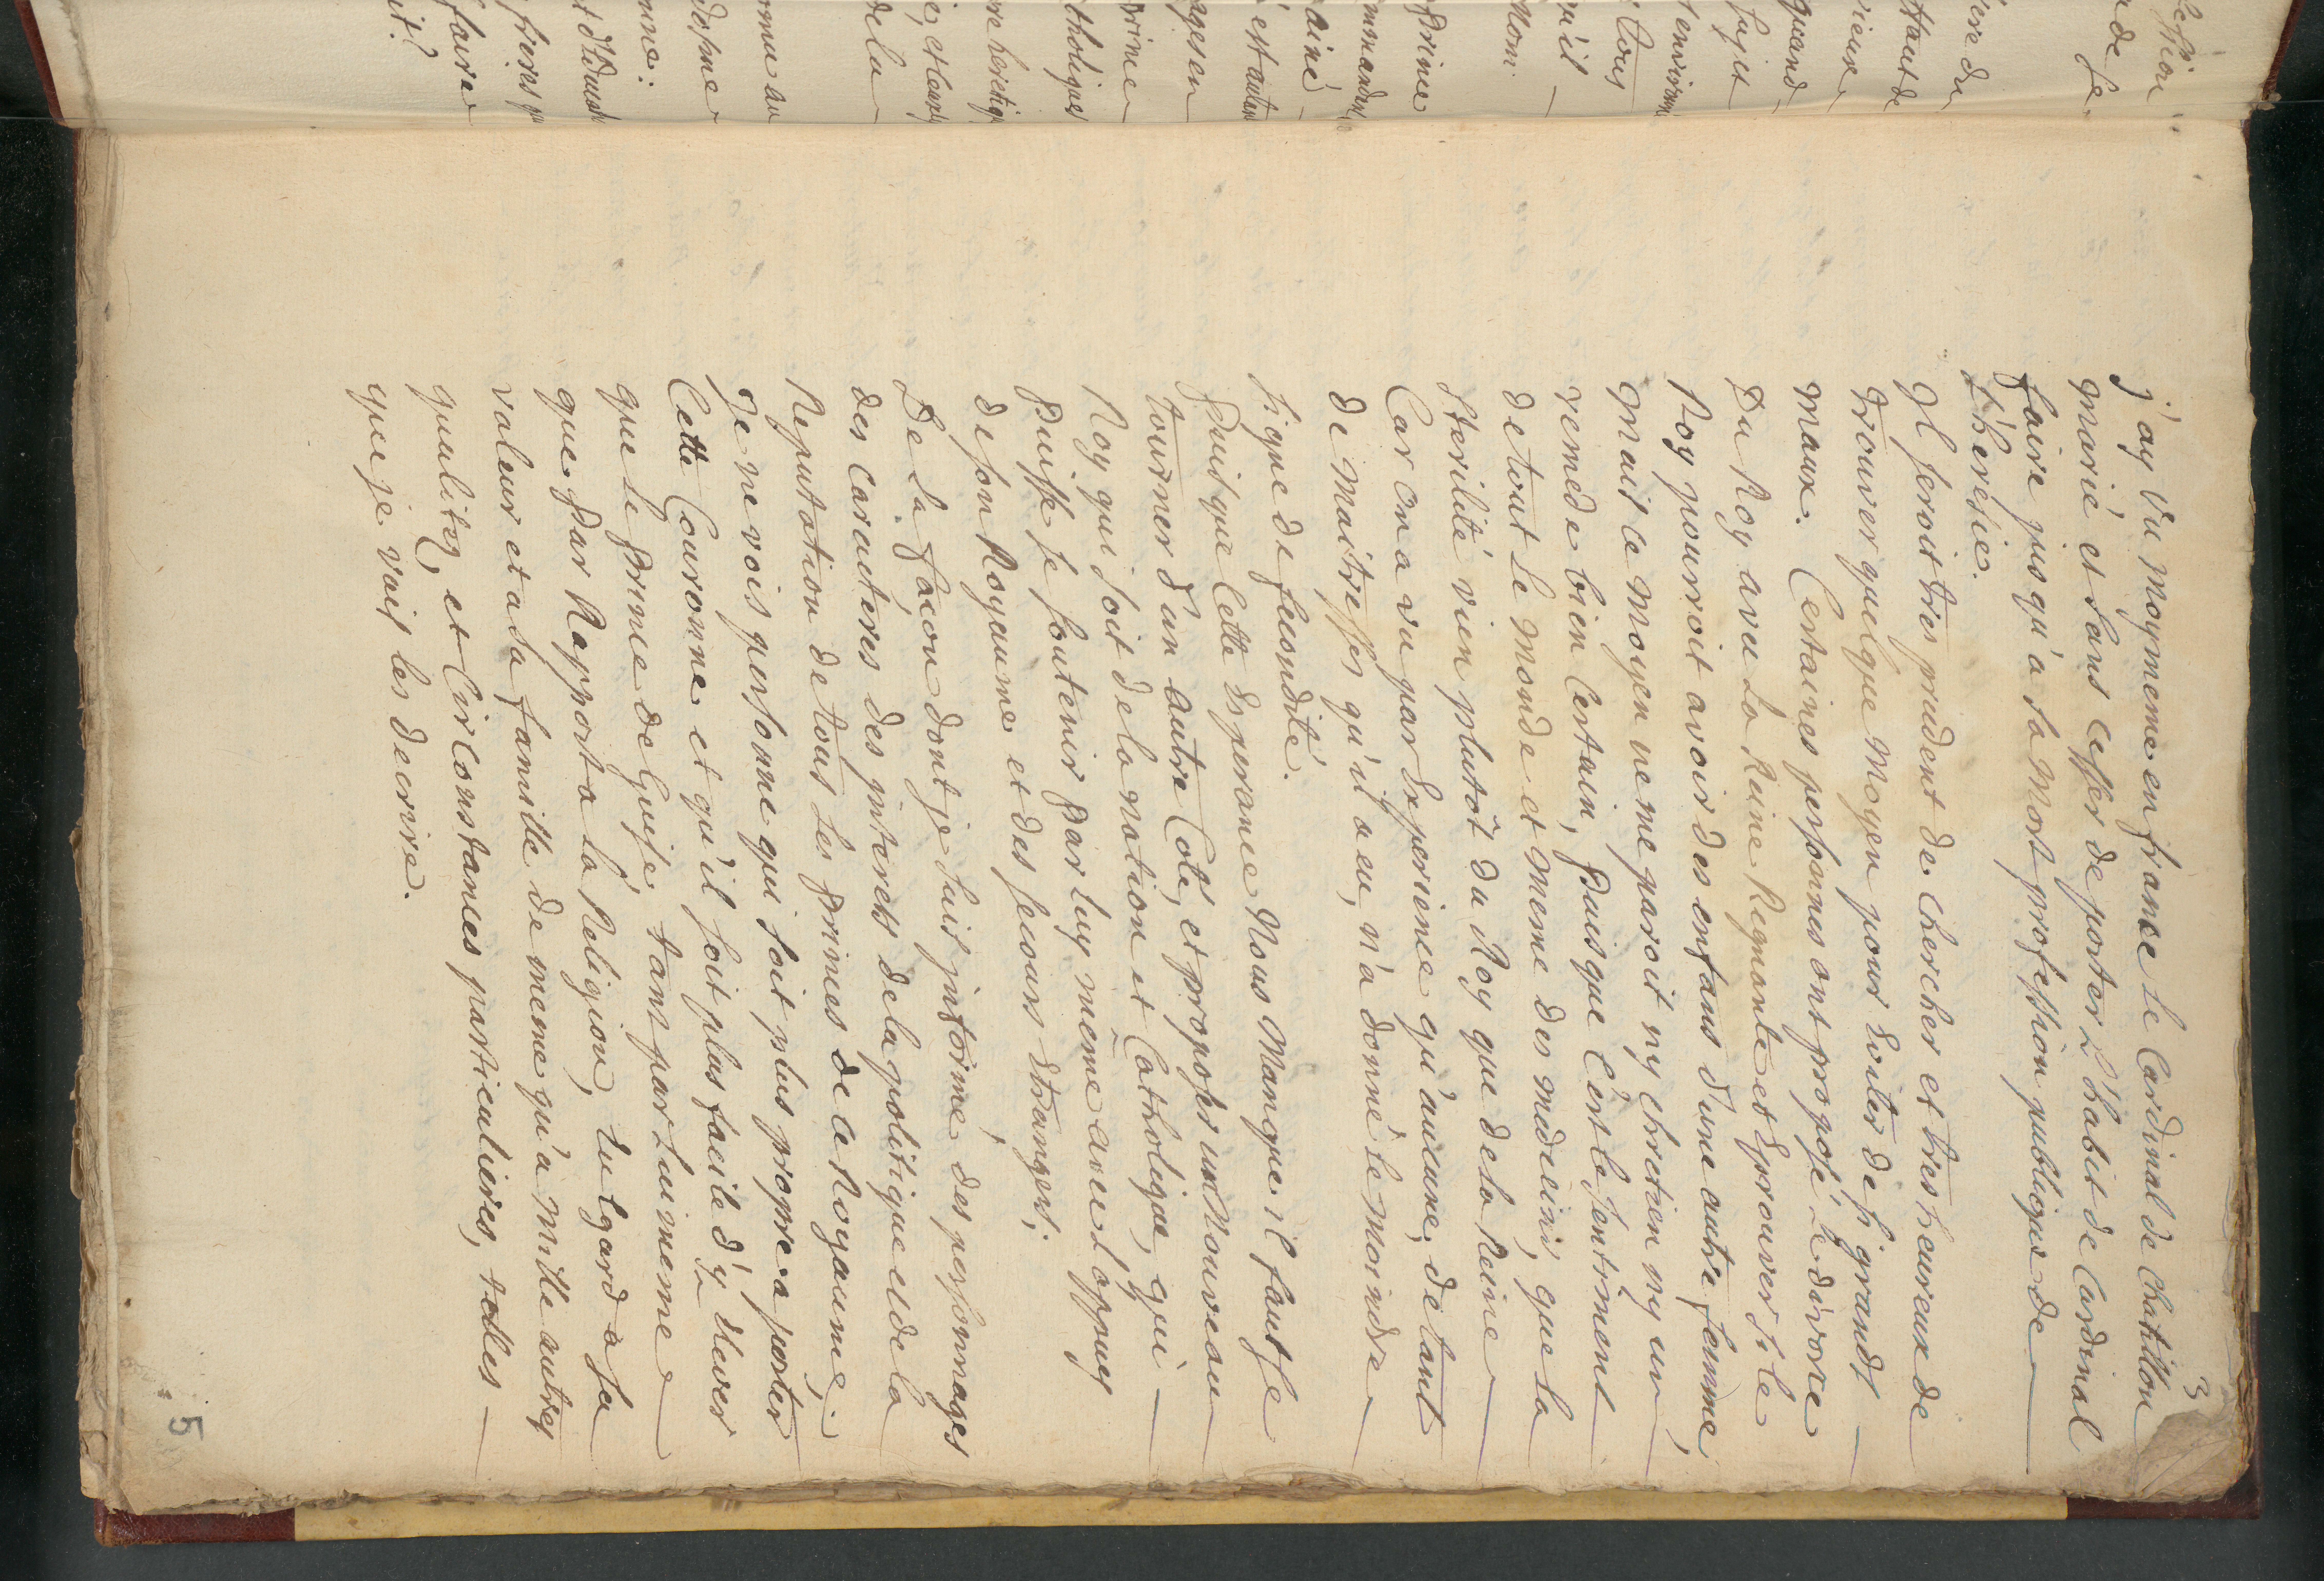 3
j'ay vu moymeme en france le Cardinal de Chatillon
marié et sans cesser de porter L'habit de Cardinal
faire jusqu'a sa Mort profession publique de
L'heresie.
Il seroit tres prudent de chercher et tres heureux de
trouver quelque Moyen pour Eviter de si grands
maux. Certaines personnes ont proposé Le divorce
Du Roy avec La Reine Regnante et Eprouver Si le
Roy pourroit avoir des enfans d'une autre femme,
mais ce moyen ne me paroit ny chretien ny un
remede bien Certain, Puis que C'est le sentiment
de tout Le Monde et meme des medecins, que la
Sterilité vien plutôt du Roy que de la Reine
Car on a vu par Experience qu'aucune, de tant
de Maitresses qu'il a eu, n'a donné le Moindre
signe de fecondité.
Puis que Cette Esperance Nous Manque il faut se
tourner d'un autre Coté, et proposer un Nouveau
Roy qui soit de la nation et Catholique, qui
Puisse se soutenir Par Luy meme avec L'appuy
de son Royaume et des secours Etrangers.
De la facon dont je suis informé des personnages
des Caractéres des interets de la politique et de la
Reputation de tous Les Princes de ce Royaume;
Je ne vois personne qui soit plus propre a porter
Cette Couronne et qu'il soit plus facile d'y Elever
que Le Prince de Guise, tant par Lui meme
que Par Rapport a La Religion, Eu Egard a sa
valeur et a sa famille de meme qu'a Mille autres
qualitez, et Circonstances particulieres, telles
que je vais les decrire.
5